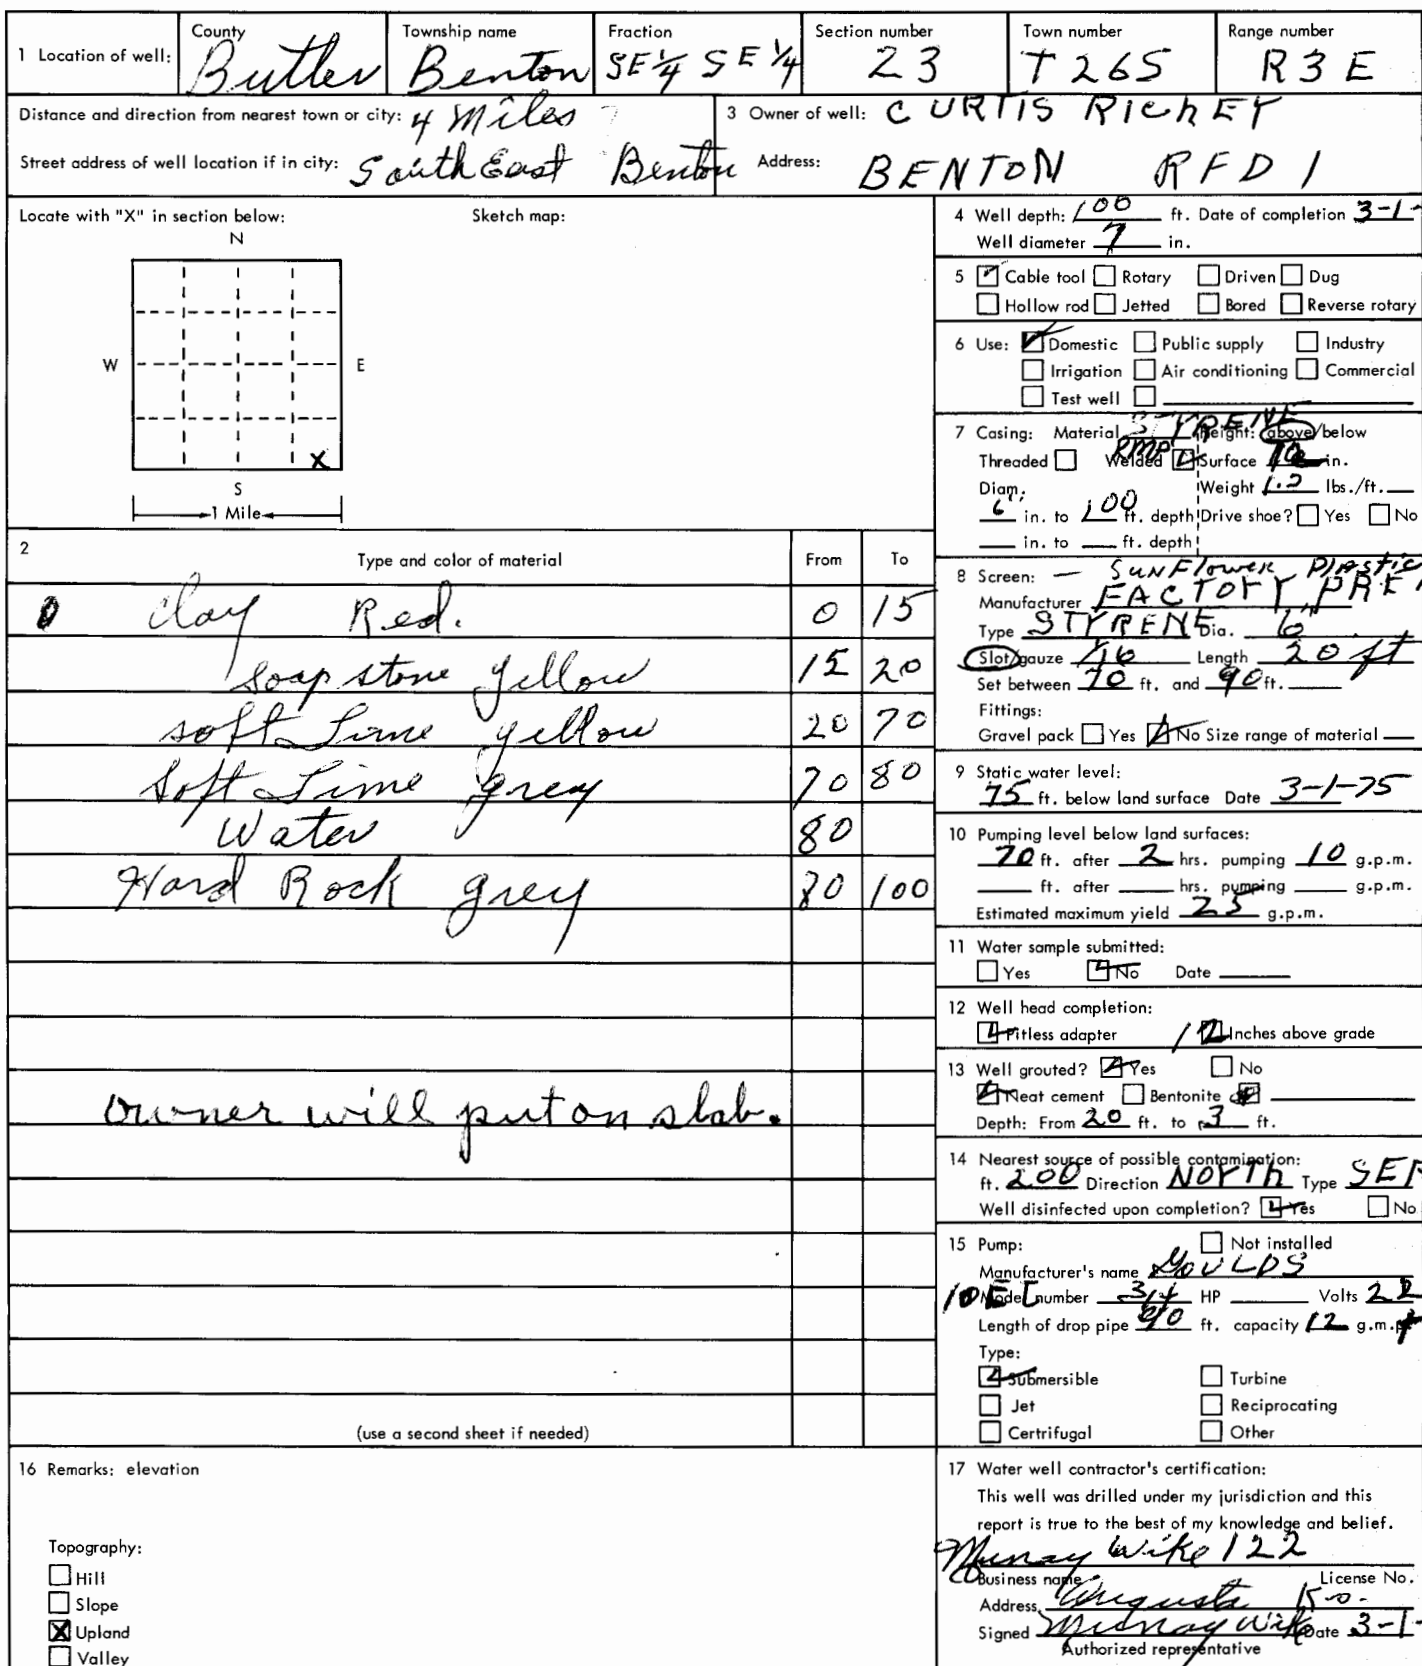 1 Location of well: County Butler Township name Benton Fraction SE 1/4 SE 1/4 Section number 23 Town number T 26S Range number R 3 E
Distance and direction from nearest town or city: 4 Miles
Street address of well location if in city: South East Benton
3 Owner of well: CURTIS RIChEY
Address: BENTON RFD 1
Locate with "X" in section below: Sketch map:
N
W E
X
S
1 Mile
2 Type and color of material From To
0 Clay Red. 0 15
Soap stone yellow 15 20
soft Lime yellow 20 70
Soft Lime grey 70 80
Water 80
Hard Rock grey 80 100
owner will put on slab.
(use a second sheet if needed)
4 Well depth: 100 ft. Date of completion 3-1-
Well diameter 7 in.
5 Cable tool Rotary Driven Dug
Hollow rod Jetted Bored Reverse rotary
6 Use: Domestic Public supply Industry
Irrigation Air conditioning Commercial
Test well
7 Casing: Material STYRENE Height: above/below
RMP
Threaded Welded Surface in.
Diam. Weight lbs./ft.
6" in. to 100 ft. depth Drive shoe? Yes No
in. to ft. depth
8 Screen: — SunFlower Plastic
Manufacturer FACTORY PRE
Type STYRENE Dia. 6"
Slot/gauze 1/16 Length 20 ft
Set between 70 ft. and 90 ft.
Fittings:
Gravel pack Yes No Size range of material
9 Static water level:
75 ft. below land surface Date 3-1-75
10 Pumping level below land surfaces:
70 ft. after 2 hrs. pumping 10 g.p.m.
ft. after hrs. pumping g.p.m.
Estimated maximum yield 25 g.p.m.
11 Water sample submitted:
Yes No Date
12 Well head completion:
Pitless adapter 12 Inches above grade
13 Well grouted? Yes No
Neat cement Bentonite
Depth: From 20 ft. to 3 ft.
14 Nearest source of possible contamination:
ft. 200 Direction NORTh Type SEP
Well disinfected upon completion? Yes No
15 Pump: Not installed
Manufacturer's name GOULDS
Model number 3/4 HP Volts 22
Length of drop pipe 90 ft. capacity 12 g.m.p.
Type:
Submersible Turbine
Jet Reciprocating
Certrifugal Other
16 Remarks: elevation
Topography:
Hill
Slope
X Upland
Valley
17 Water well contractor's certification:
This well was drilled under my jurisdiction and this
report is true to the best of my knowledge and belief.
Murray Wike 122
Business name License No.
Address Augusta
Signed Murray Wike Date 3-1-
Authorized representative